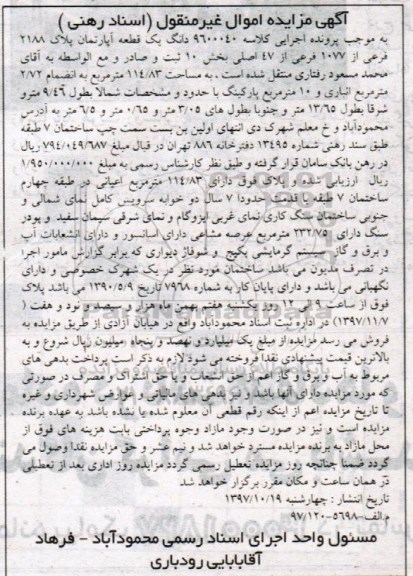 آگهی مزایده اموال غیرمنقول (اسناد رهنی)
به موجب پرونده اجرایی کلاسه 9600040 دانگ یک قطعه آپارتمان پلاک 2188
فرعی از 1077 فرعی از 47 اصلی بخش 10 ثبت و صادر و مع الواسطه به آقای
محمد مسعود رفتاری منتقل شده است. به مساحت 114/83 مترمربع به انضمام 2/72
مترمربع انباری و 10 مترمربع پارکینگ با حدود و مشخصات شمالا بطول 9/46 مترو
شرقا بطول 13/65 متر و جنوبا بطول های 3/05 متر و 0/65 متر و 6/5 متر به آدرس
محمودآباد و خ معلم شهرک دی انتهای اولین بن بست سمت چپ ساختمان 7 طبقه
طبق سند رهنی شماره 13495 دفترخانه 886 تهران در قبال مبلغ 794/049/687 ریال
در رهن بانک سامان قرار گرفته و طبق نظر کارشناس رسمی به مبلغ 1/950/000/000
ریال ارزیابی شده و پلاک فوق دارای 114/83 مترمربع اعیانی در طبقه چهارم
ساختمان 7 طبقه با قدمت حدودا 7 سال دو خوابه سرویس کامل نمای شمالی و
جنوبی ساختمان سنگ کاری نمای غربی ایزوگام و نمای شرقی سیمان سفید و پودر
سنگ دارای 232/75 مترمربع عرصه مشاعی دارای آسانسور و دارای انشعابات آب
و برق و گاز سیستم گرمایشی پکیج و شوفاژ دیواری که برابر گزارش مامور اجرا
در تصرف مدیون می باشد ساختمان مورد نظر در یک شهرک خصوصی و دارای
نگهبانی می باشد و دارای پایان کار به شماره 7968 تاریخ 1390/5/9 می باشد پلاک
فوق از ساعت 9 الی 12 روز یکشنبه هفتم بهمن ماه هزار و سیصد و نود و هفت (
1397/11/7) در اداره ثبت اسناد محمودآباد واقع در خیابان آزادی از طریق مزایده به
فروش می رسد مزایده از مبلغ یک میلیارد و نهصد و پنجاه میلیون ریال شروع و به
بالاترین قیمت پیشنهادی نقدا فروخته می شود لازم به ذکر است پرداخت بدهی های
مربوط به آب و برق و گاز اعم از حق انشعاب و یا حق اشتراک و مصرف در صورتی
که مورد مزایده دارای آنها باشد و نیز بدهی های مالیاتی و عوارض شهرداری و غیره
تا تاریخ مزایده اعم از اینکه رقم قطعی آن معلوم شده یا نشده باشد به عهده برنده
مزایده است و نیز در صورت وجود مازاد وجوه پرداختی بابت هزینه های فوق از
محل مازاد به برنده مزایده مسترد خواهد شد و نیم عشر و حق مزایده نقدا وصول می
گردد ضمنا چنانچه روز مزایده تعطیل رسمی گردد مزایده روز اداری بعد از تعطیلی
در همان ساعت و مکان مقرر برگزار خواهد شد
تاریخ انتشار : چهارشنبه 1397/10/19
م-الف-5698-97/120
مسئول واحد اجرای اسناد رسمی محمودآباد - فرهاد
آقابابایی رودباری